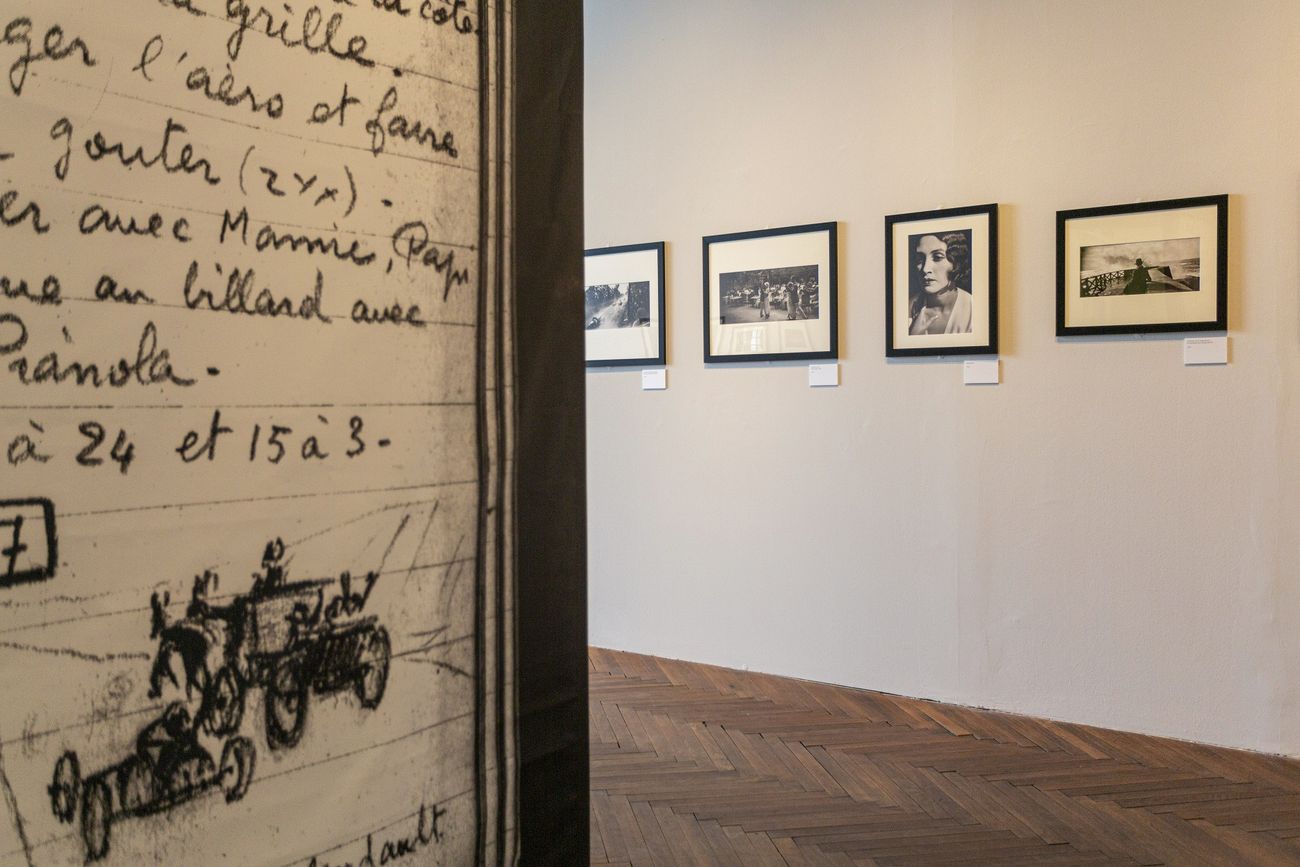 la côte
la grille.
ger l'aéro et faire
gouter (2YX).
er avec Mamie, Papi
ue au billard avec
Pianola.
à 24 et 15 à 3-
7